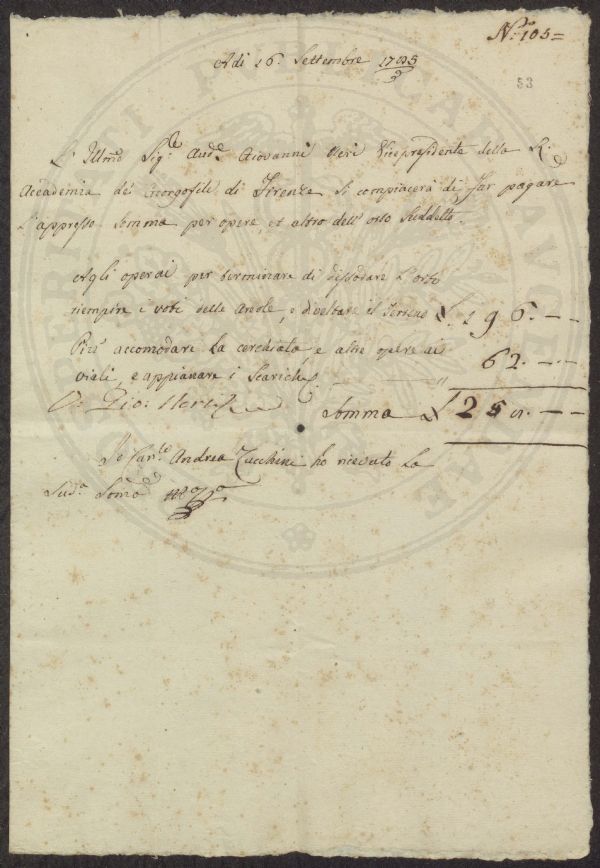 N.º 105=
Adi 16. Settembre 1785
53
L' Illmo Sig.e Aud.e Giovanni Neri Vicepresidente della R.
Accademia de' Georgofili di Firenze si compiacerà di far pagare
l'appresso somma per opere, et altro dell' orto suddetto
Agli operai per terminare di dissodare l'orto
riempire i voti delle Aiole, e divoltare il terreno £. 196.--
Più accomodare la cerchiata, e altre opere ai
viali, e appianare i Scarichi 62.--
Gio: Neri
Somma £ 258.--
Io Can.co Andrea Zucchini ho ricevuto la
Sud.a Somma